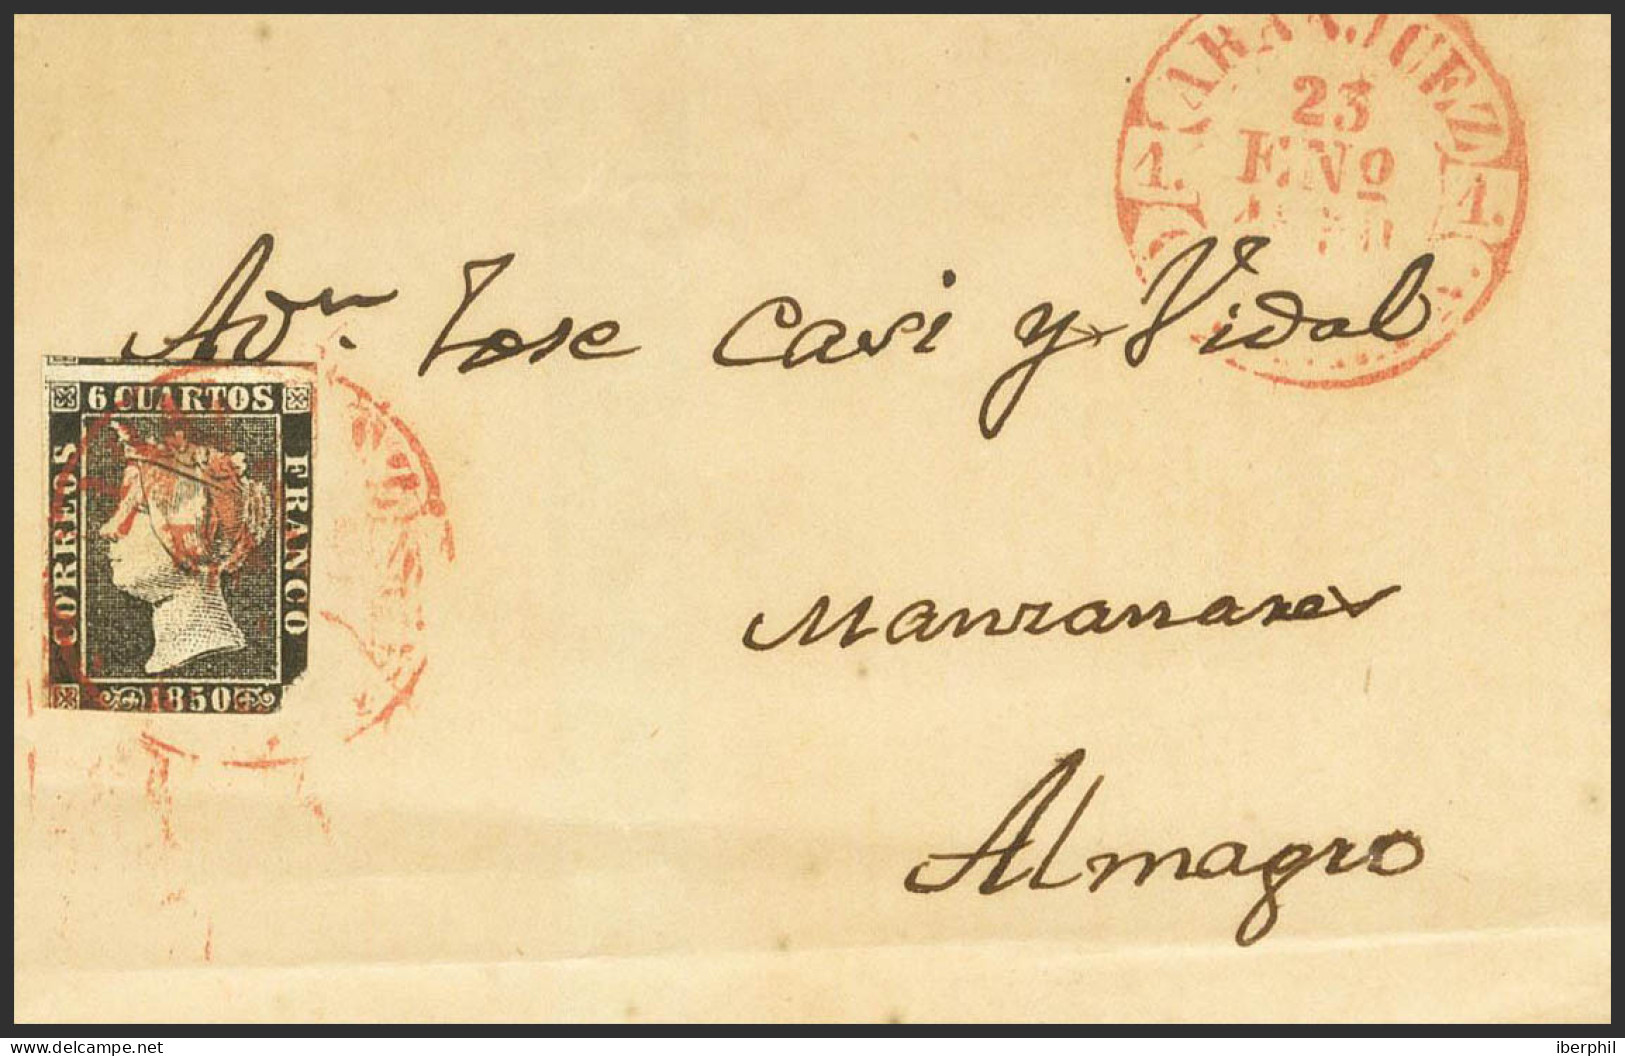 ARANJUEZ
23
ENº
1850
1. 1.
A Dn. Jose Casi y Vidal
6 CUARTOS
CORREOS
FRANCO
1850
Manzanares
Almagro
delcampe.net
iberphil